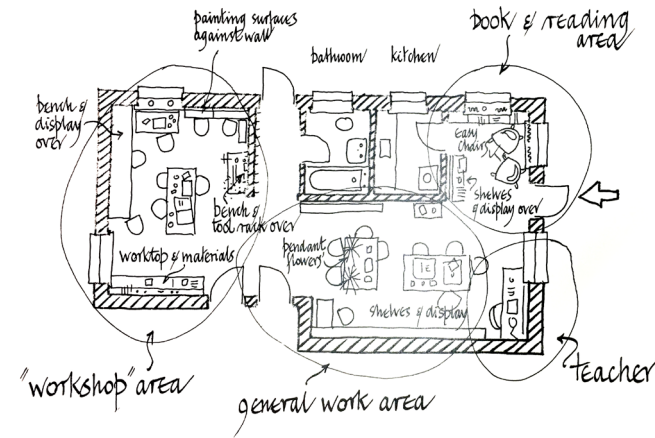 painting surfaces
against wall
bathroom
kitchen
book & reading
area
bench &
display
over
Easy
Chairs
shelves
& display over
bench &
tool rack over
worktop & materials
pendant
flowers
shelves & display
"workshop" area
general work area
teacher